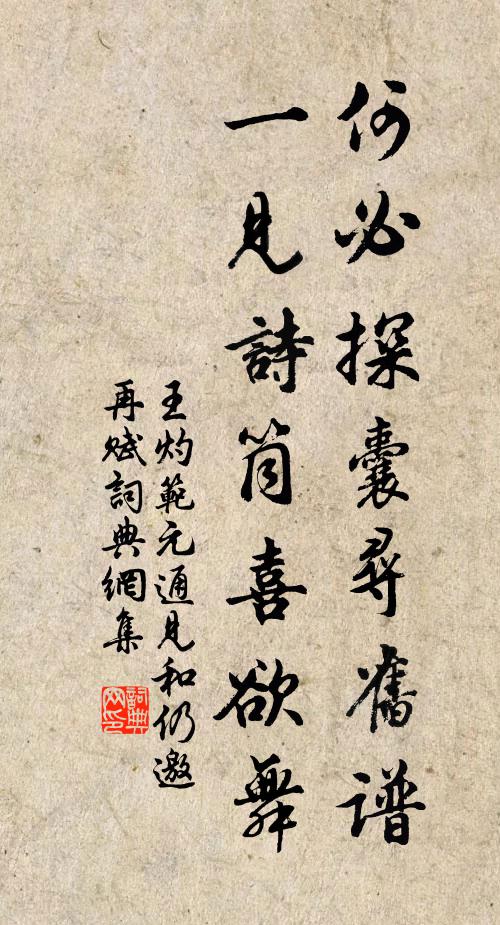 何必探囊尋舊譜
一見詩筒喜欲舞
王灼範元通見和仍邀
再賦詞典網集
詞典网印